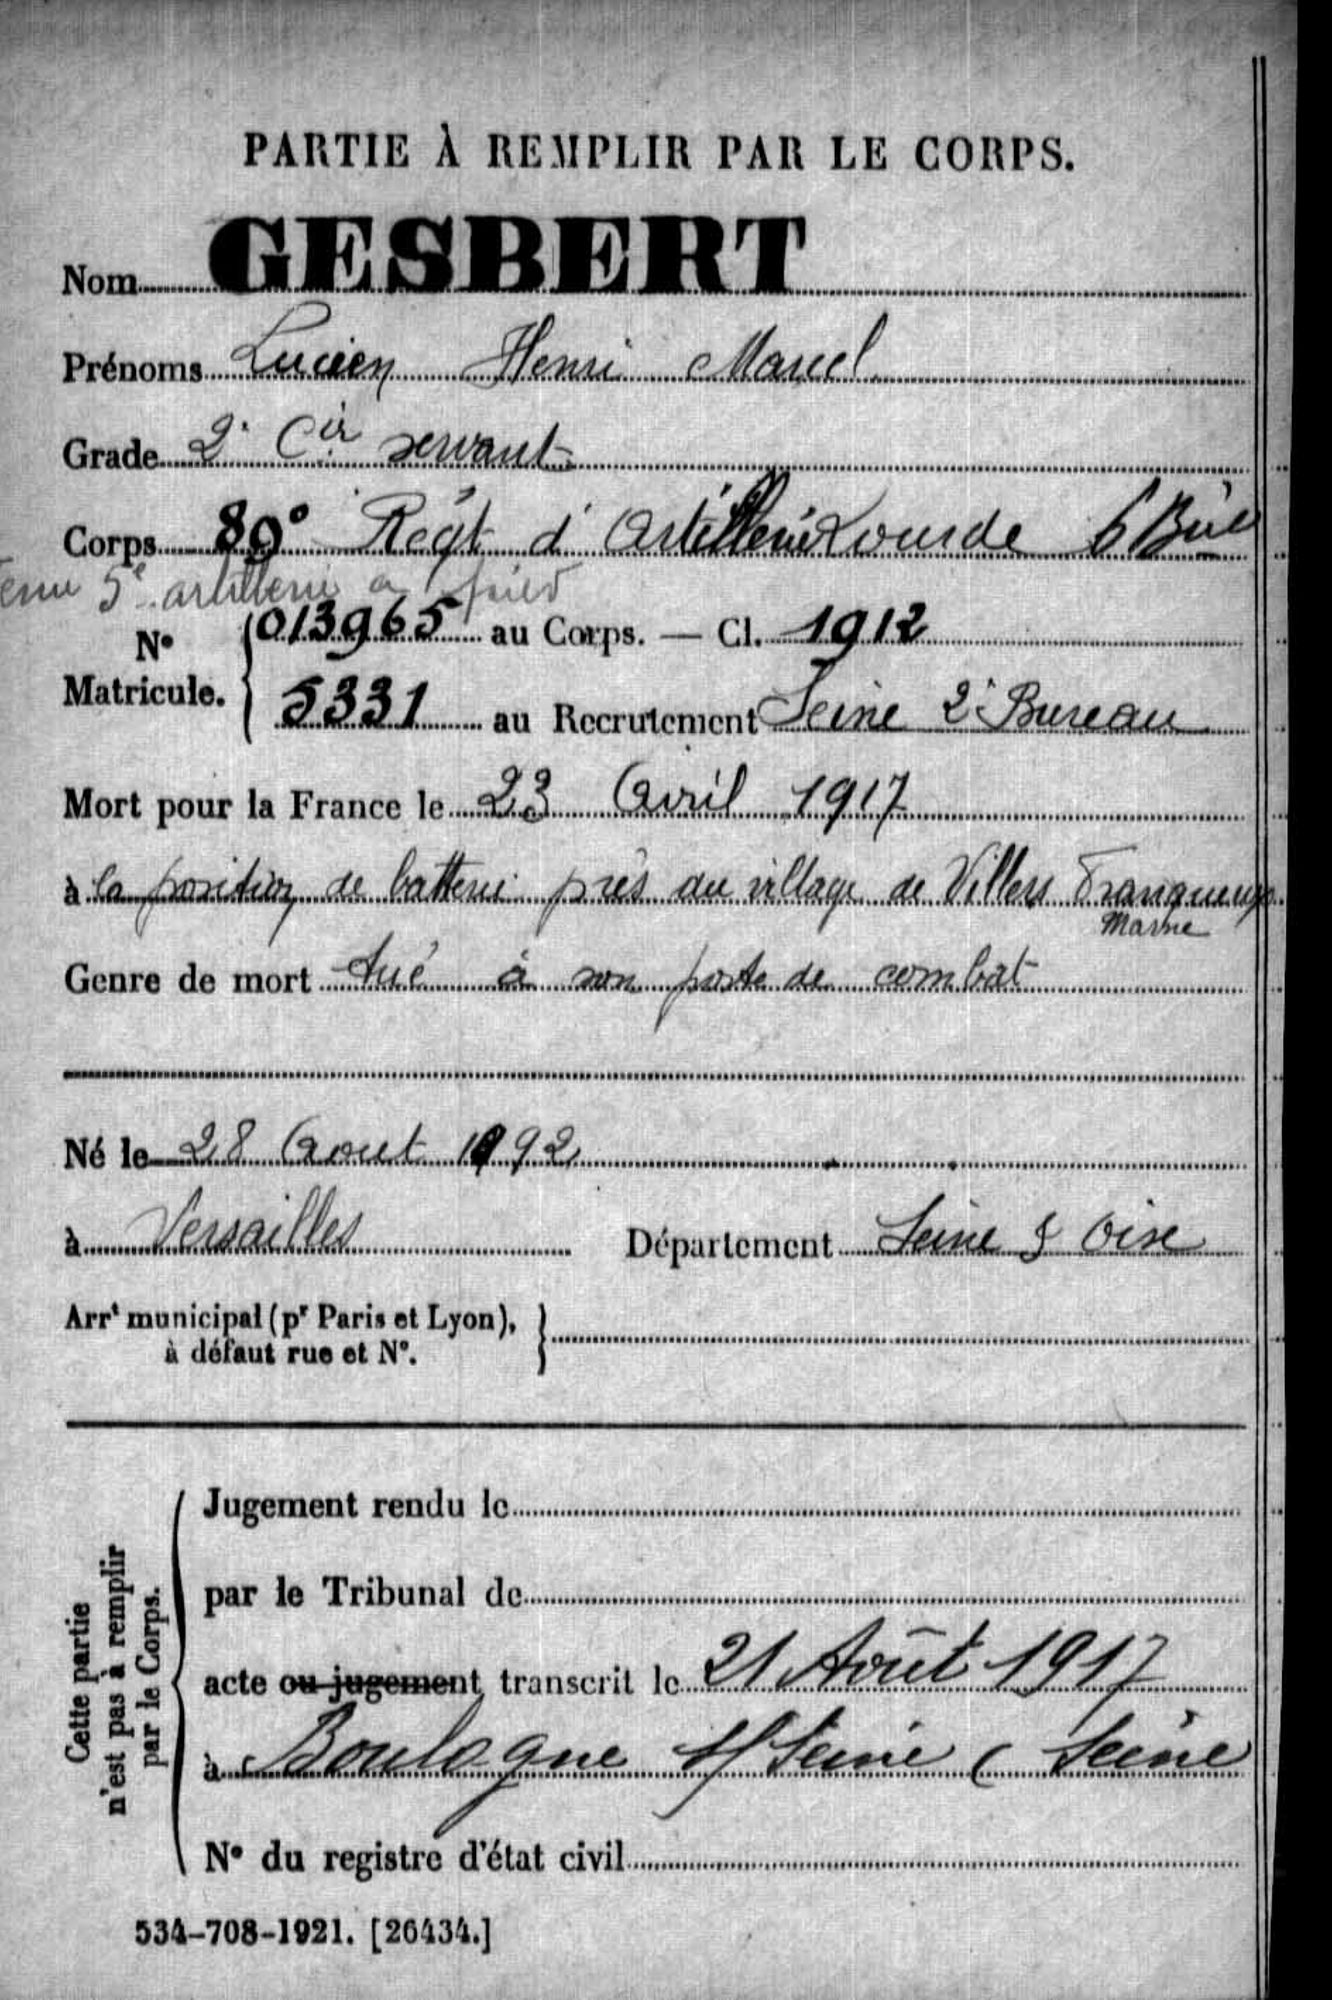 PARTIE À REMPLIR PAR LE CORPS.
Nom GESBERT
Prénoms Lucien Henri Marcel
Grade 2e Cir servant
Corps 89° Régt d'Artillerie Lourde 6 Bie
5e artillerie à pied
N° Matricule. { 013965 au Corps. — Cl. 1912
5331 au Recrutement Seine 2e Bureau
Mort pour la France le 23 Avril 1917
à la position de batterie près du village de Villers Franqueux
Marne
Genre de mort tué à son poste de combat
Né le 28 Aout 1892
à Versailles Département Seine & Oise
Arrt municipal (pr Paris et Lyon), à défaut rue et N°. }
Cette partie n'est pas à remplir par le Corps. {
Jugement rendu le
par le Tribunal de
acte ou jugement transcrit le 21 Août 1917
à Boulogne s/ Seine (Seine
N° du registre d'état civil
534-708-1921. [26434.]